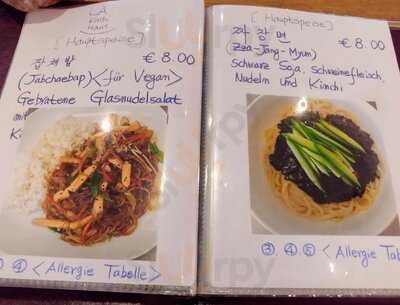 [Hauptspeise]
잡채밥 € 8.00
(Jabchaebap) <für Vegan>
Gebratene Glasnudelsalat
④ <Allergie Tabelle>
[Hauptspeise]
짜장면 € 8.00
(Zza-Jang-Myun)
Schwarze Soja, Schweinefleisch,
Nudeln und Kimchi
③, ④ ⑤ <Allergie Tab